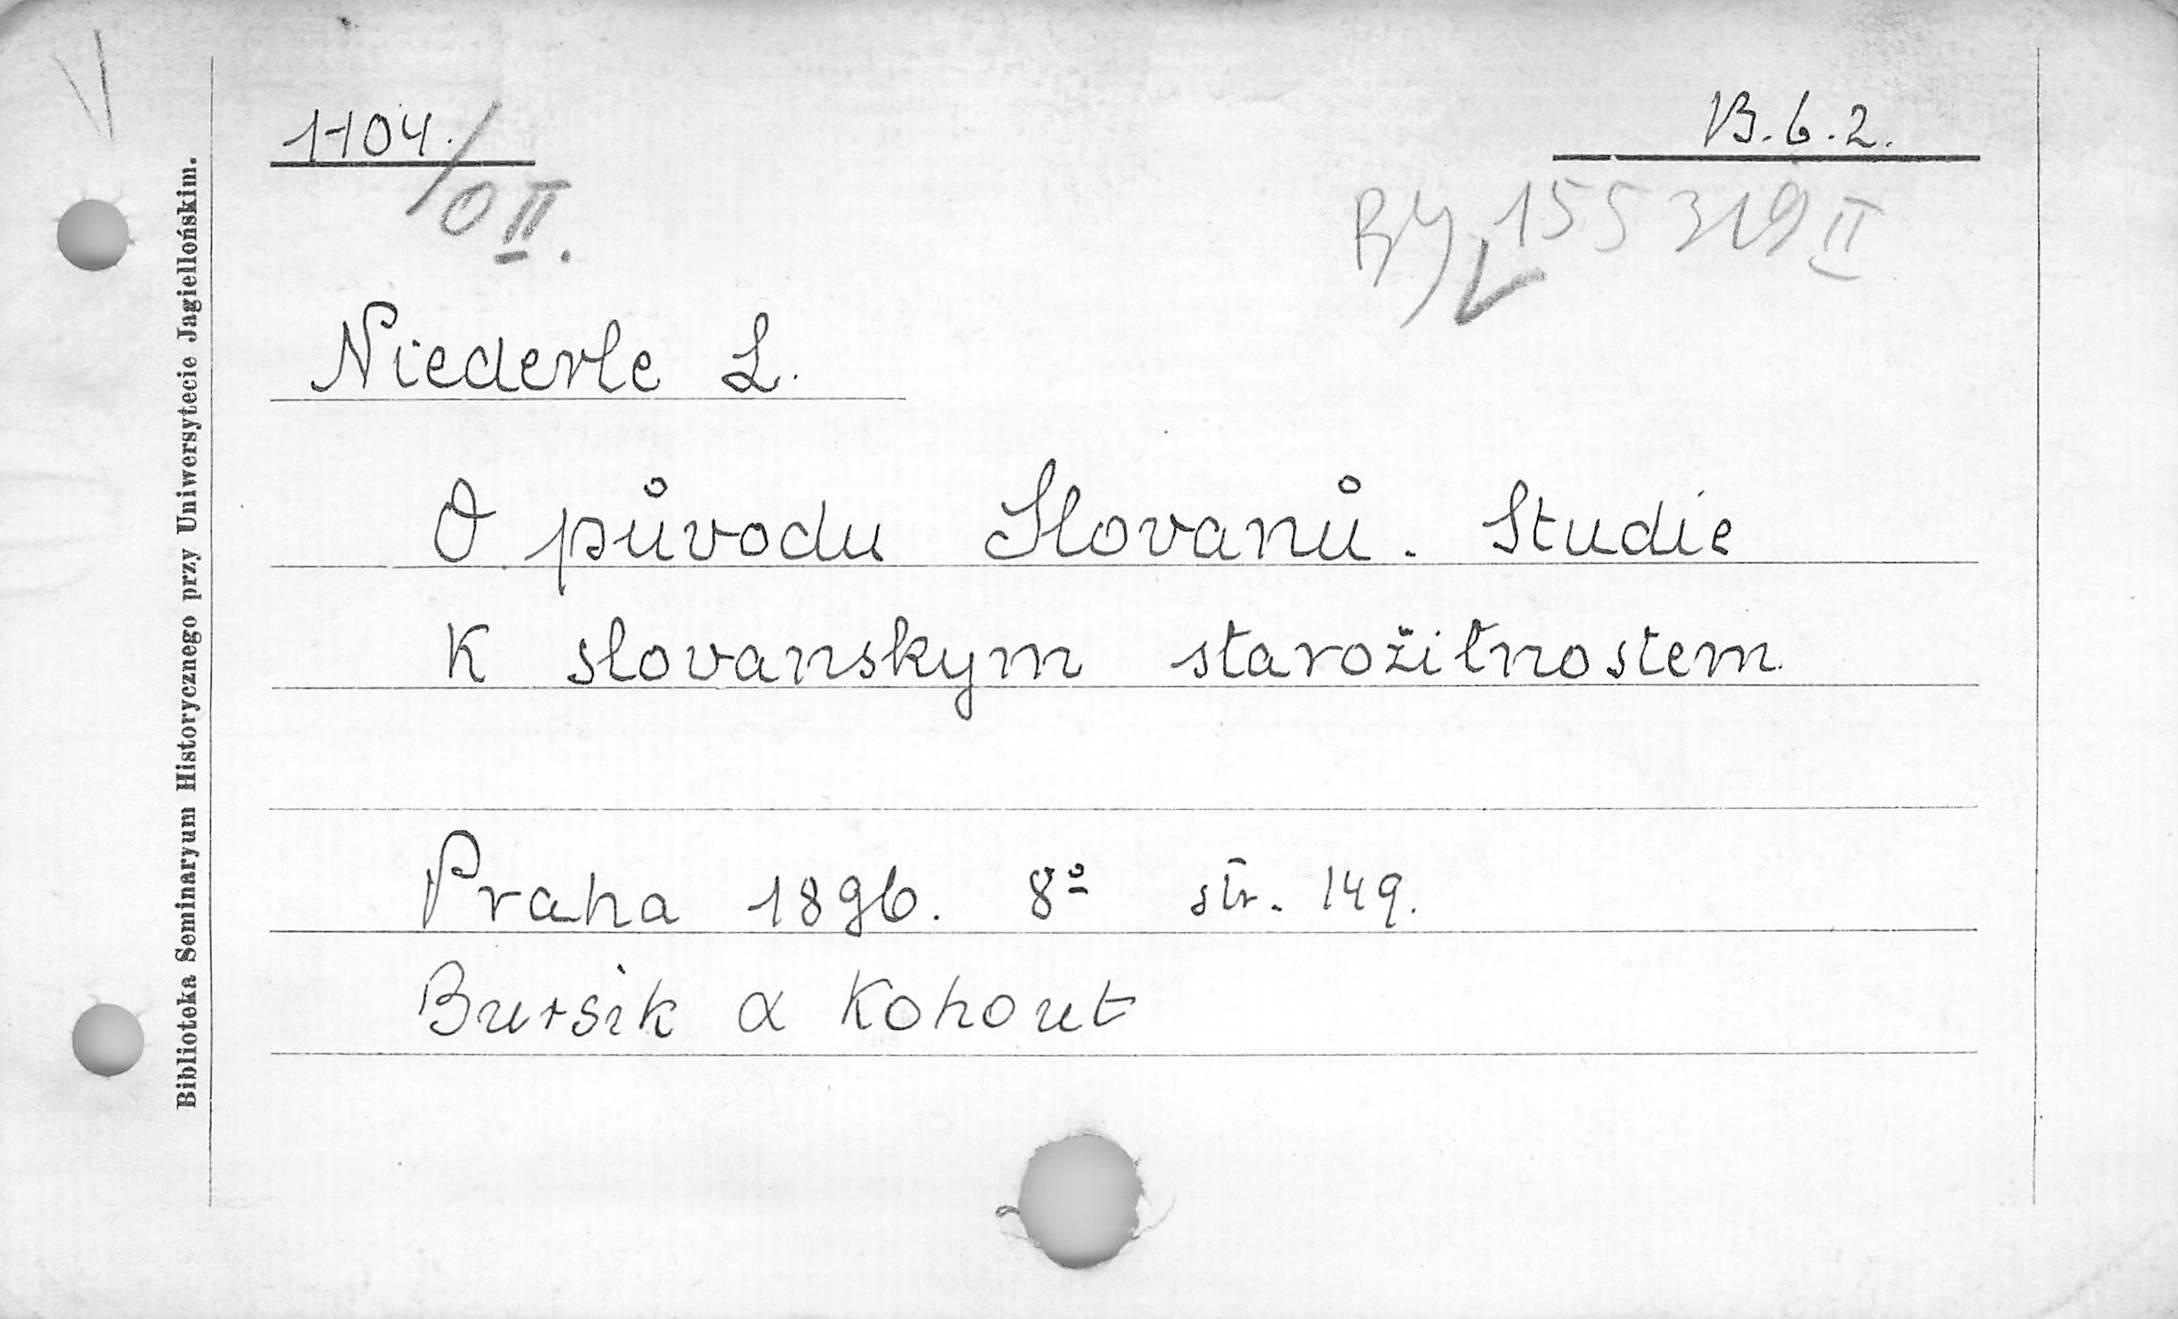 1104./
B. 6. 2.
0 II.
BJ 155319 II
Niederle L.
O původu Slovanů. Studie
K slovanskym starožitnostem
Praha 1896. 8º str. 149.
Bursik a Kohout
Biblioteka Seminaryum Historycznego przy Uniwersytecie Jagiellońskim.